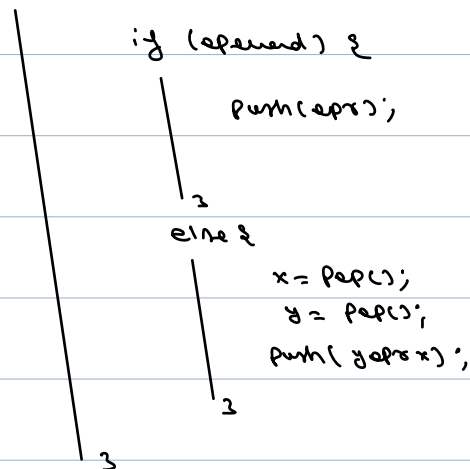 if (operand) {
push(opr);
}
else {
x = pop();
y = pop();
push( y opr x);
}
}